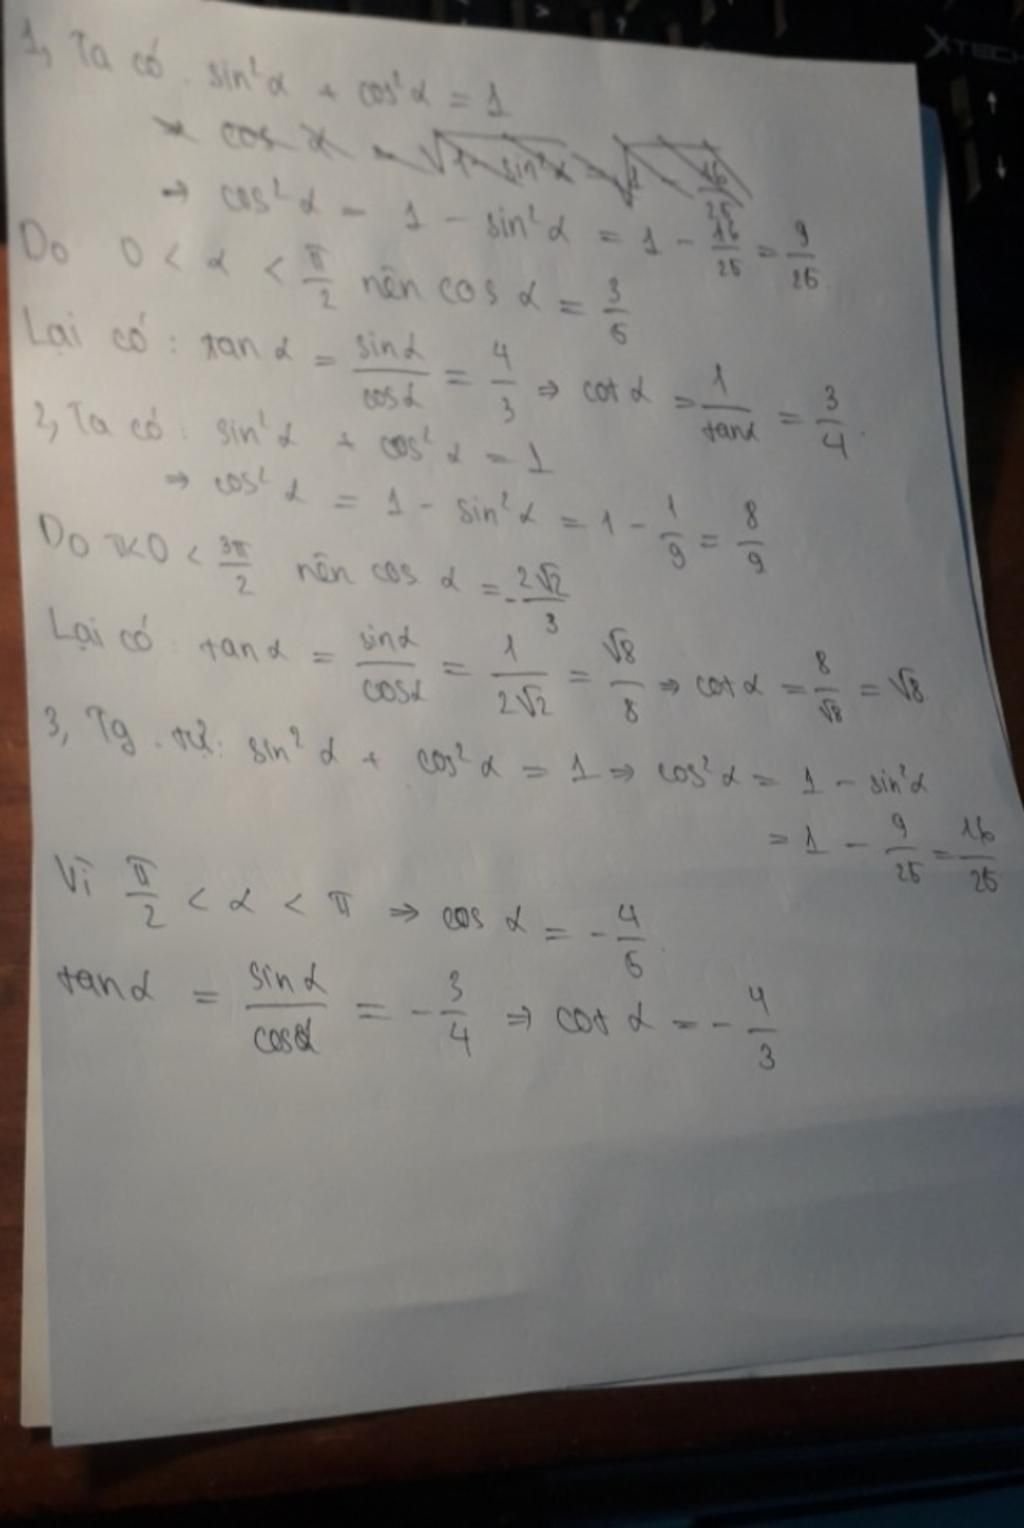 XTECH
1, Ta có. sin²α + cos²α = 1
→ cos²α = 1 - sin²α = 1 - 16/25 = 9/25.
Do 0 < α < π/2 nên cos α = 3/5
Lại có: tan α = sinα/cosα = 4/3 ⇒ cot α = 1/tanα = 3/4.
2, Ta có: sin²α + cos²α = 1
⇒ cos²α = 1 - sin²α = 1 - 1/9 = 8/9
Do π<0 < 3π/2 nên cos α = -2√2/3
Lại có: tanα = sinα/cosα = 1/2√2 = √8/8 ⇒ cot α = 8/√8 = √8
3, Tg. tự: sin²α + cos²α = 1 ⇒ cos²α = 1 - sin²α
= 1 - 9/25 = 16/25
Vì π/2 < α < π ⇒ cos α = -4/5.
tanα = sinα/cosα = -3/4 ⇒ cot α = -4/3